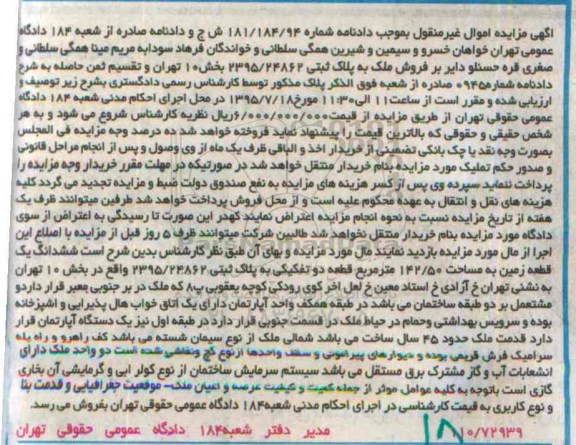 اگهی مزایده اموال غیرمنقول بموجب دادنامه شماره ۱۸۱/۱۸۴/۹۴ ش ج و دادنامه صادره از شعبه ۱۸۴ دادگاه
عمومی تهران خواهان خسرو و سیمین و شیرین همگی سلطانی و خواندگان فرهاد سودابه مریم مینا همگی سلطانی و
صغری قره حسنلو دایر بر فروش ملک به پلاک ثبتی ۲۳۹۵/۲۴۸۶۲ بخش۱۰ تهران و تقسیم ثمن حاصله به شرح
دادنامه شماره۰۹۴۵ صادره از شعبه فوق الذکر پلاک مذکور توسط کارشناس رسمی دادگستری بشرح زیر توصیف و
ارزیابی شده و مقرر است از ساعت۱۱ الی۱۱:۳۰ مورخ۱۳۹۵/۷/۱۸ در محل اجرای احکام مدنی شعبه ۱۸۴ دادگاه
عمومی حقوقی تهران از طریق مزایده از قیمت۶/۰۰۰/۰۰۰/۰۰۰ریال نظریه کارشناس شروع می شود و به هر
شخص حقیقی و حقوقی که بالاترین قیمت را پیشنهاد نماید فروخته خواهد شد ده درصد وجه مزایده فی المجلس
بصورت وجه نقد یا چک بانکی تضمینی از خریدار اخذ و الباقی ظرف یک ماه از وی وصول و پس از انجام مراحل قانونی
و صدور حکم تملیک مورد مزایده بنام خریدار منتقل خواهد شد در صورتیکه در مهلت مقرر خریدار وجه مزایده را
پرداخت ننماید سپرده وی پس از کسر هزینه های مزایده به نفع صندوق دولت ضبط و مزایده تجدید می گردد کلیه
هزینه های نقل و انتقال به عهده محکوم علیه است و از محل فروش پرداخت خواهد شد طرفین میتوانند ظرف یک
هفته از تاریخ مزایده نسبت به نحوه انجام مزایده اعتراض نمایند کهدر این صورت تا رسیدگی به اعتراض از سوی
دادگاه مورد مزایده بنام خریدار منتقل نخواهد شد طالبین شرکت میتوانند ظرف ۵ روز قبل از مزایده با اطلاع این
اجرا از مال مورد مزایده بازدید نمایند مال مورد مزایده و بهای آن طبق نظر کارشناس بدین شرح است ششدانگ یک
قطعه زمین به مساحت ۱۴۲/۵۰ مترمربع قطعه دو تفکیکی به پلاک ثبتی ۲۳۹۵/۲۴۸۶۲ واقع در بخش ۱۰ تهران
به نشئی تهران خ آزادی خ استاد معین خ لعل اخر کوی رودکی کوچه یعقوبی پ۸ که ملک در بر جنوبی معبر قرار داردو
مشتعمل بر دو طبقه ساختمان می باشد در طبقه همکف واحد آپارتمان دارای یک اتاق خواب هال پذیرایی و اشپزخانه
بوده و سرویس بهداشتی وحمام در حیاط ملک در قسمت جنوبی قرار دارد در طبقه اول نیز یک دستگاه آپارتمان قرار
دارد قدمت ملک حدود ۴۵ سال ساخت می باشد شمالی ملک از نوع سیمان شسته می باشد کف راهرو و راه پله
سرامیک فرش قریعی بوده و دیوارهای پیرامونی و سقف واحدها ازنوع گچ ونقاشی شده است دو واحد ملک دارای
انشعابات آب و گاز مشترک برق مستقل می باشد سیستم سرمایش ساختمان از نوع کولر ابی و گرمایشی آن بخاری
گازی است باتوجه به کلیه عوامل موثر از جمله کمیت و کیفیت عرصه و اعیان ملک- موقعیت جغرافیایی و قدمت بنا
و نوع کاربری به قیمت کارشناسی در اجرای احکام مدنی شعبه۱۸۴ دادگاه عمومی حقوقی تهران بفروش می رسد.
۱۰/۷۲۹۳۹ ۱۸ مدیر دفتر شعبه۱۸۴ دادگاه عمومی حقوقی تهران